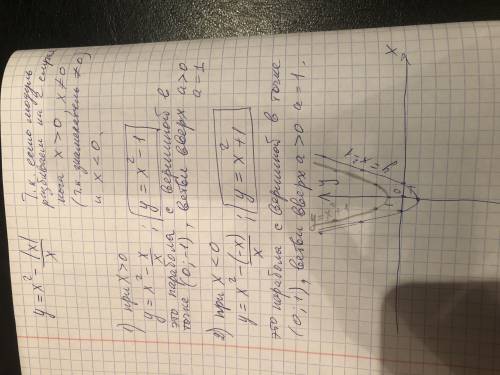 y = x² - |x|/x
Т.к. есть модуль
разбиваем на 2 случая
когда x > 0, x ≠ 0
(т.к знаменатель ≠ 0)
и x < 0.
1) при x > 0
y = x² - x/x ; y = x² - 1
это парабола с вершиной в
точке (0; -1), ветви вверх a > 0
a = 1
2) при x < 0
y = x² - (-x)/x ; y = x² + 1
это парабола с вершиной в точке
(0; 1), ветви вверх a > 0 a = 1.
y
x
0
1